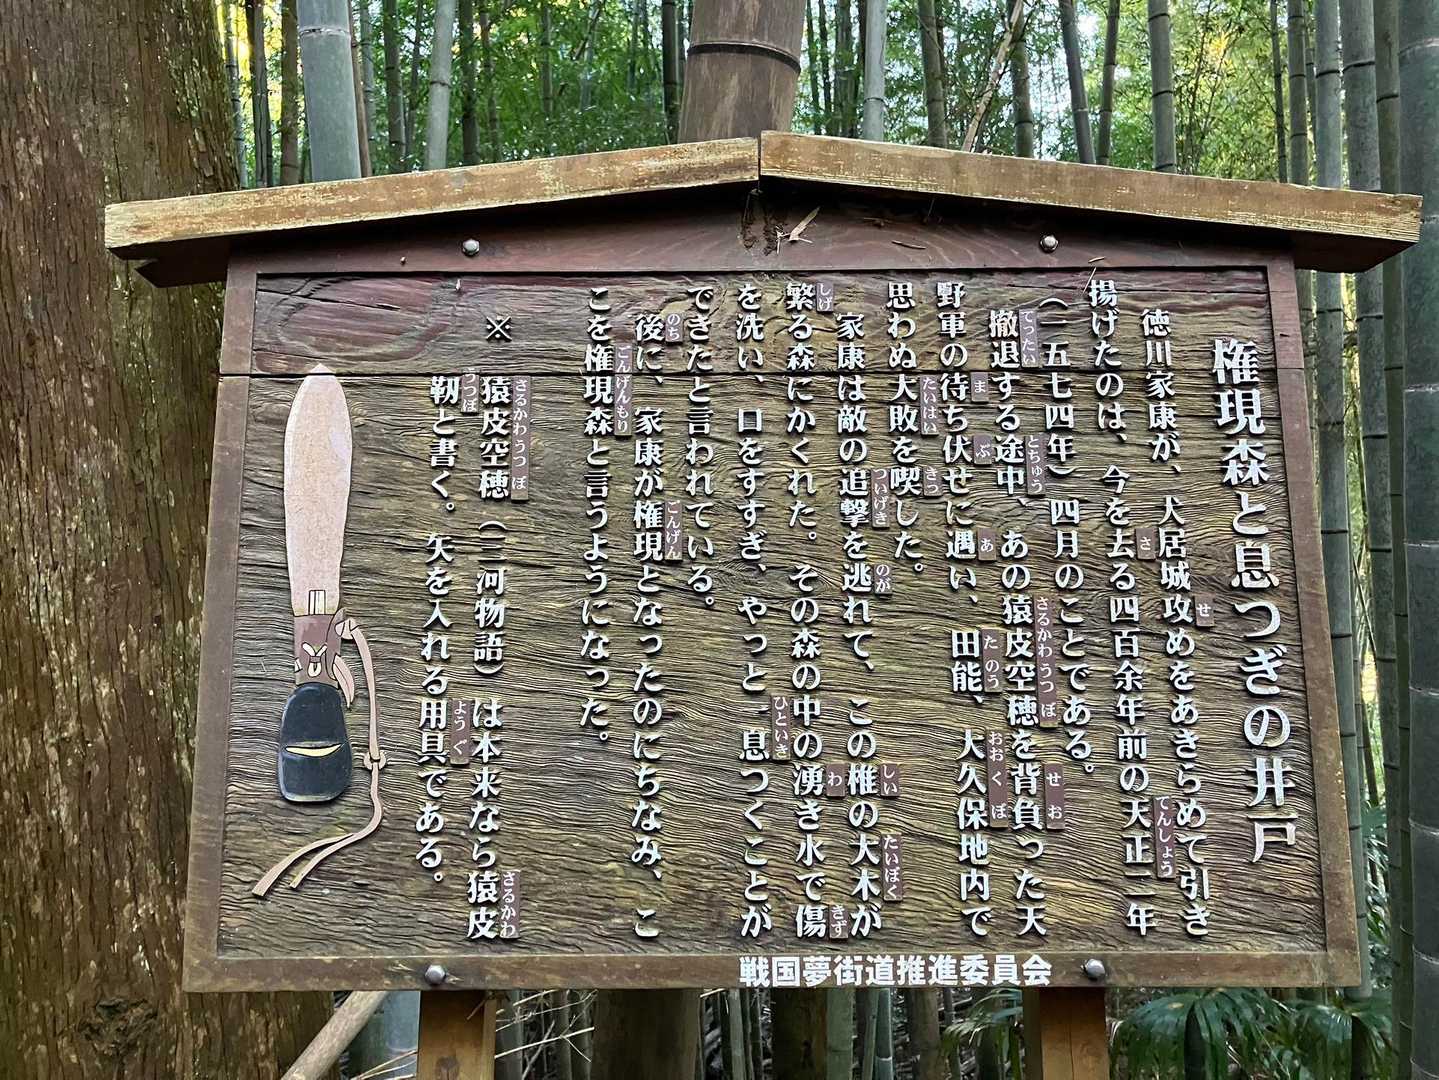 権現森と息つぎの井戸
徳川家康が、犬居城攻めをあきらめて引き
揚げたのは、今を去る四百余年前の天正二年
（一五七四年）四月のことである。
撤退する途中、あの猿皮空穂を背負った天
野軍の待ち伏せに遇い、田能、大久保地内で
思わぬ大敗を喫した。
家康は敵の追撃を逃れて、この椎の大木が
繁る森にかくれた。その森の中の湧き水で傷
を洗い、口をすすぎ、やっと一息つくことが
できたと言われている。
後に、家康が権現となったのにちなみ、こ
こを権現森と言うようになった。
※ 猿皮空穂（三河物語）は本来なら猿皮
靭と書く。矢を入れる用具である。
戦国夢街道推進委員会